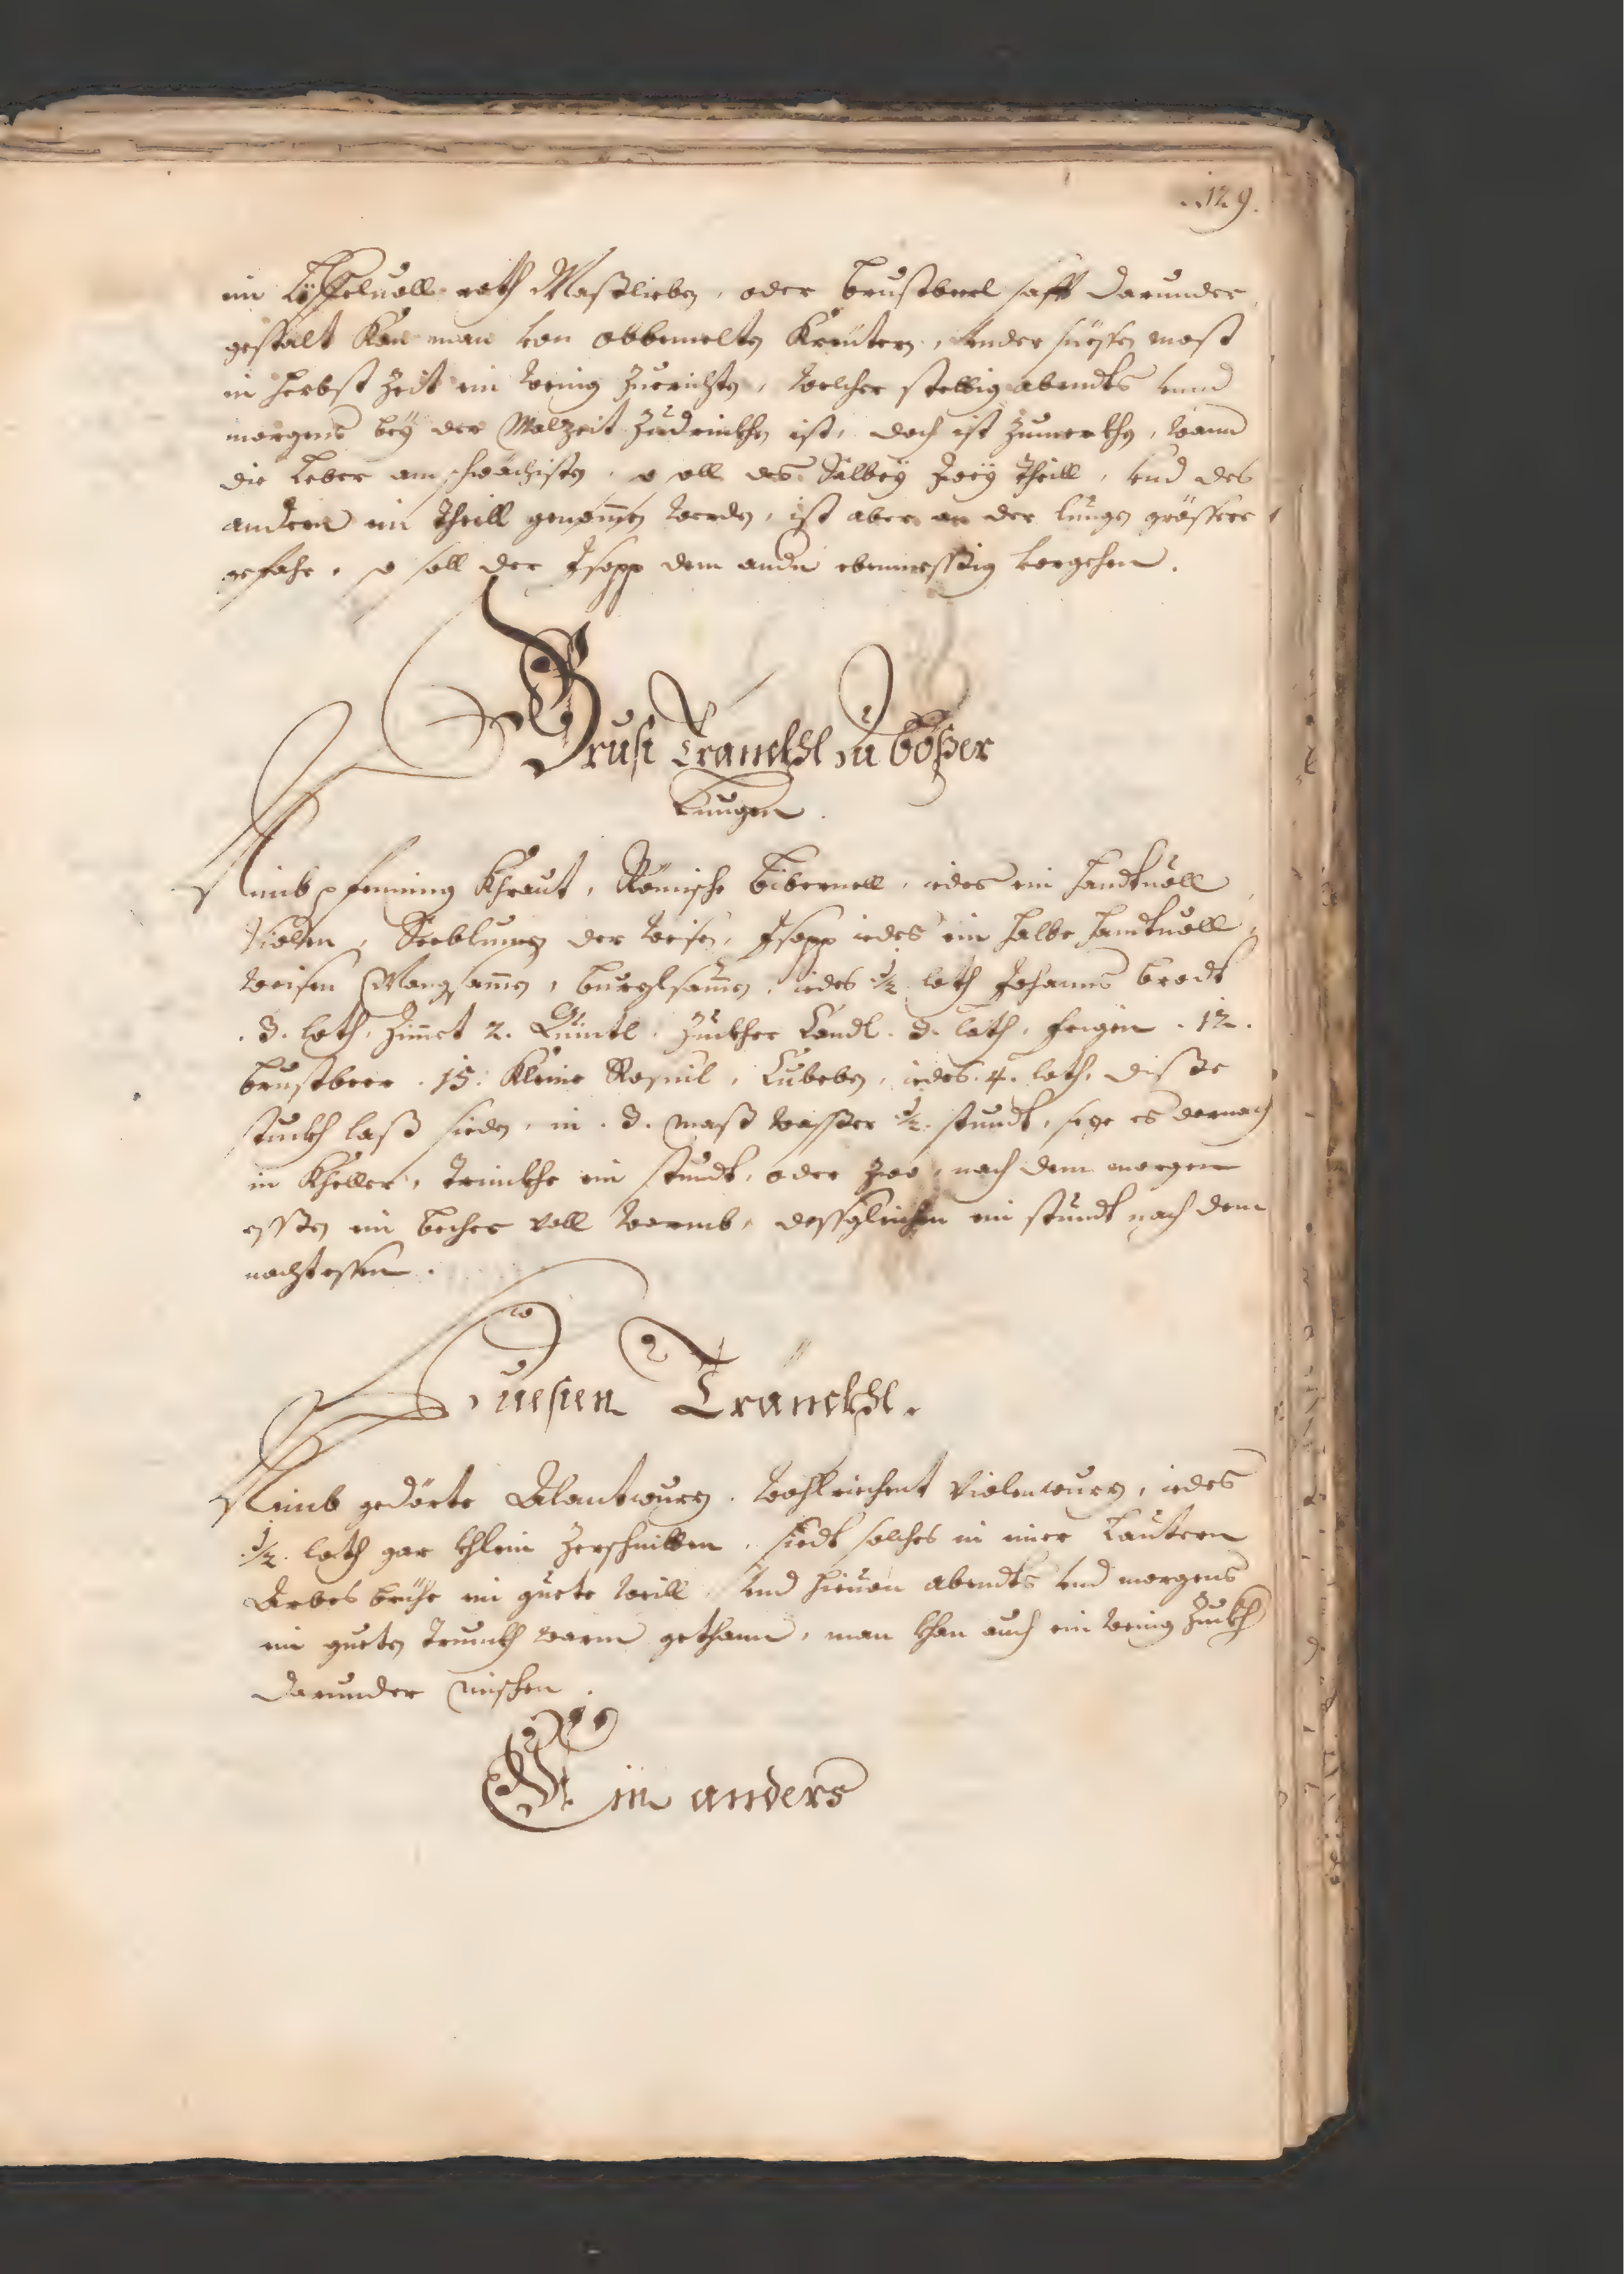 .129.
ein Löffeluoll roth Maßlieben, oder brustbeel safft darunder
gestalt Kan man von obbemelten Kreutern, under süessen most
in herbst Zeit ein wenig Zuerichten, welcher stettig abendts vnnd
morgens beÿ der Malzeit Zudrinkhen ist, doch ist Zumerkhen, wann
die Leber am schwächisten, soll des Salbeÿ Zweÿ theill, vnd des
andern ein theill genomen werden, ist aber an der lungen grössere
gefahr, so soll der Isopp dem andn ebenmessig vorgehen.
Brust tranckhl zu bößer
Lungen.
Nimb pfenning Khraut, Römische bibernell, iedes ein handtuoll
Violen, Seeblumen der weisen, Isopp iedes ein halbe handtuoll,
weisen Mongsamen, burglsamen, iedes ½ loth Johanns brodt
.3. loth, Zimet 2. Quintl. Zuckher Candl .3. loth, feigen .12.
brustbeer .15. Kleine Rosinl, Cubeben, iedes .4. loth, diße
stuckh laß sieden, in .3. maß waßßer ½ stundt, seze es darnach
in Kheller, trinckhe ein stundt, oder zwo, nach dem morgen
essßen ein becher voll warmb, dessgleichen ein stundt nach dem
nachtessen.
Huesten Tränckhl.
Nimb gedörte Alantwurz, wohlriechent Violenwurz, iedes
½ loth gar khlein Zerschnitten, siedt solches in einer Lautern
Arbes brühe ein guete weill, Vnd hieuon abendts vnd morgens
ein gueten trunckh warm gethann, man khan auch ein wenig Zuckh
darunder mischen.
Ein anders